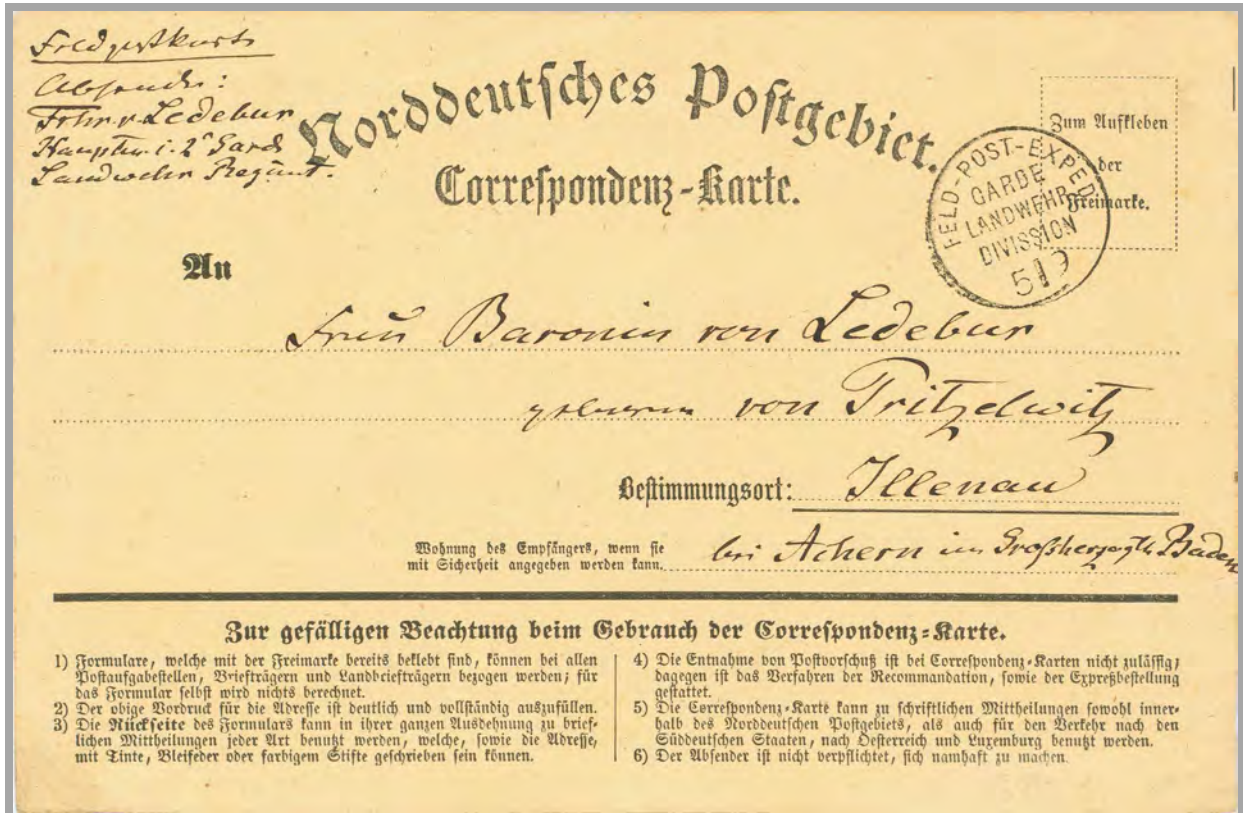 Feldpostkarte
Absender:
Frhr. v. Ledebur
Hauptm. i. 2ᵗ Garde
Landwehr Regimt.
Norddeutsches Postgebiet.
Correspondenz-Karte.
Zum Aufkleben
der
Freimarke.
FELD-POST-EXPED
GARDE
LANDWEHR
DIVISSION
5 9
An
Frau Baronin von Ledebur
geborene von Tritzelwitz
Bestimmungsort: Illenau
Wohnung des Empfängers, wenn sie
mit Sicherheit angegeben werden kann.
bei Achern im Großherzogth. Baden
Zur gefälligen Beachtung beim Gebrauch der Correspondenz-Karte.
1) Formulare, welche mit der Freimarke bereits beklebt sind, können bei allen
Postaufgabestellen, Briefträgern und Landbriefträgern bezogen werden; für
das Formular selbst wird nichts berechnet.
2) Der obige Vordruck für die Adresse ist deutlich und vollständig auszufüllen.
3) Die Rückseite des Formulars kann in ihrer ganzen Ausdehnung zu brief-
lichen Mittheilungen jeder Art benutzt werden, welche, sowie die Adresse,
mit Tinte, Bleifeder oder farbigem Stifte geschrieben sein können.
4) Die Entnahme von Postvorschuß ist bei Correspondenz-Karten nicht zulässig;
dagegen ist das Verfahren der Recommandation, sowie der Expreßbestellung
gestattet.
5) Die Correspondenz-Karte kann zu schriftlichen Mittheilungen sowohl inner-
halb des Norddeutschen Postgebiets, als auch für den Verkehr nach den
Süddeutschen Staaten, nach Oesterreich und Luxemburg benutzt werden.
6) Der Absender ist nicht verpflichtet, sich namhaft zu machen.